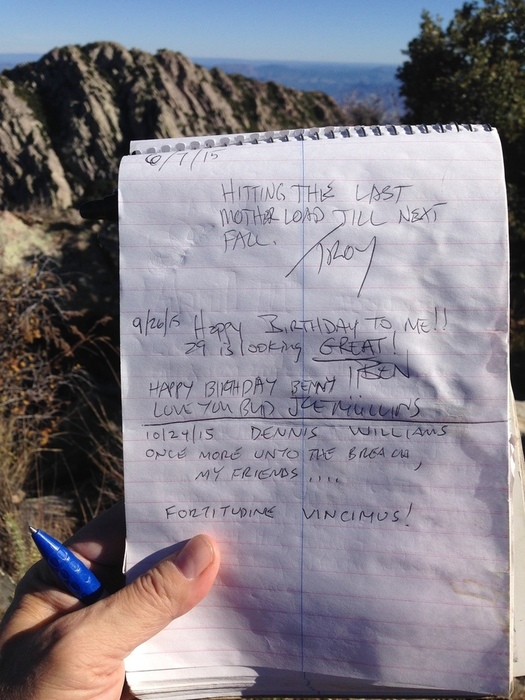 6/7/15
HITTING THE LAST
MOTHER LOAD TILL NEXT
FALL.
TROY
9/26/15 Happy BIRTHDAY TO ME!!
29 is looking GREAT!
BEN
HAPPY BIRTHDAY BENNY
LOVE YOU BUD JOE MULLINS
10/24/15 DENNIS WILLIAMS
ONCE MORE UNTO THE BREACH,
MY FRIENDS ....
FORTITUDINE VINCIMUS!